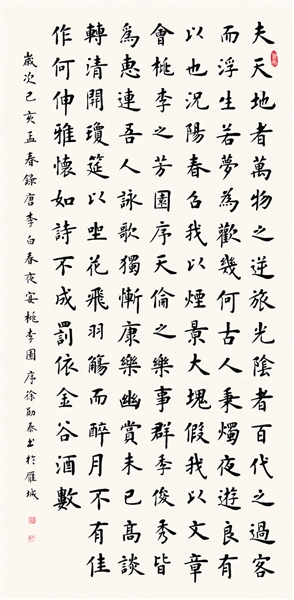 夫天地者萬物之逆旅光陰者百代之過客
而浮生若夢為歡幾何古人秉燭夜遊良有
以也況陽春召我以煙景大塊假我以文章
會桃李之芳園序天倫之樂事群季俊秀皆
爲惠連吾人詠歌獨慚康樂幽賞未已高談
轉清開瓊筵以坐花飛羽觴而醉月不有佳
作何伸雅懷如詩不成罰依金谷酒數
歲次己亥孟春錄唐李白春夜宴桃李園序徐勛泰书於雁城